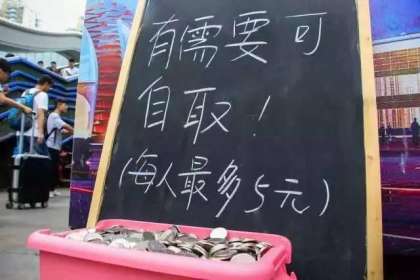 有需要可
自取！
(每人最多5元)